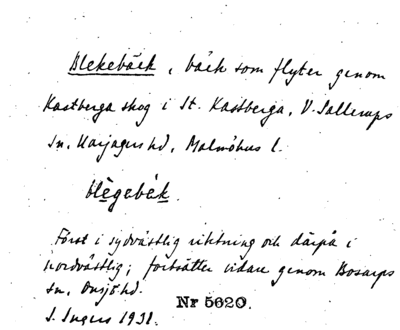 Blekebäck, bäck som flyter genom
Kastberga skog i St. Kastberga, V. Sallerups
sn, Harjagers hd, Malmöhus l.
blègebék.
Först i sydvästlig riktning och därpå i
nordvästlig; fortsätter vidare genom Bosarps
sn, Onsjö hd.
Nr 5620.
I. Ingers 1931.